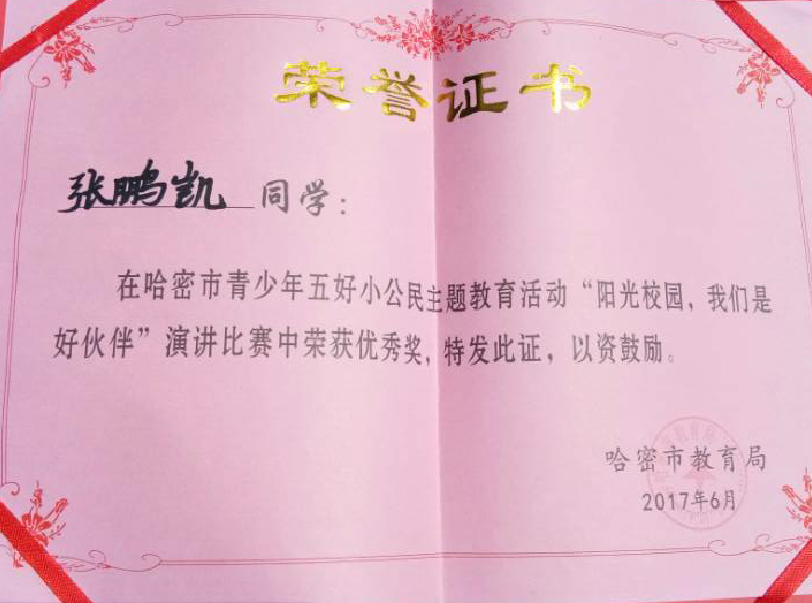 荣誉证书
张鹏凯 同学：
在哈密市青少年五好小公民主题教育活动“阳光校园，我们是
好伙伴”演讲比赛中荣获优秀奖，特发此证，以资鼓励。
哈密市教育局
2017年6月